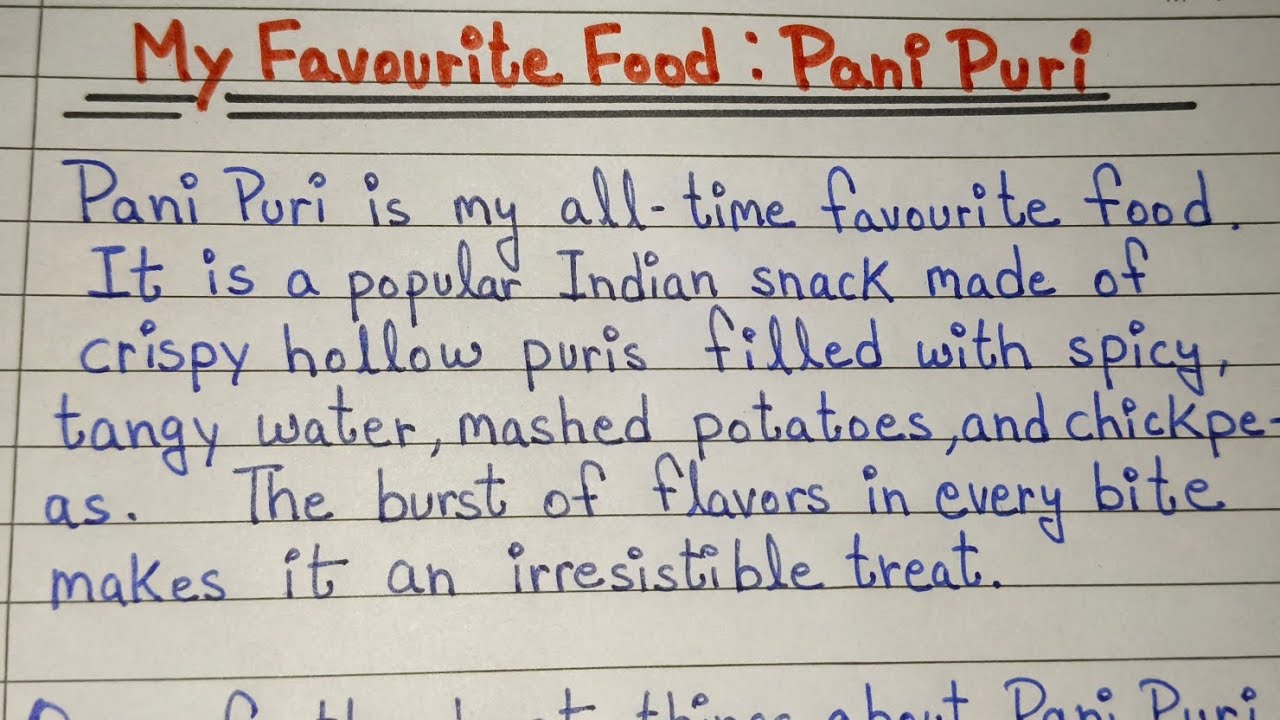 My Favourite Food : Pani Puri
Pani Puri is my all-time favourite food.
It is a popular Indian snack made of
crispy hollow puris filled with spicy,
tangy water, mashed potatoes, and chickpe-
as. The burst of flavors in every bite
makes it an irresistible treat.
things about Pani Puri